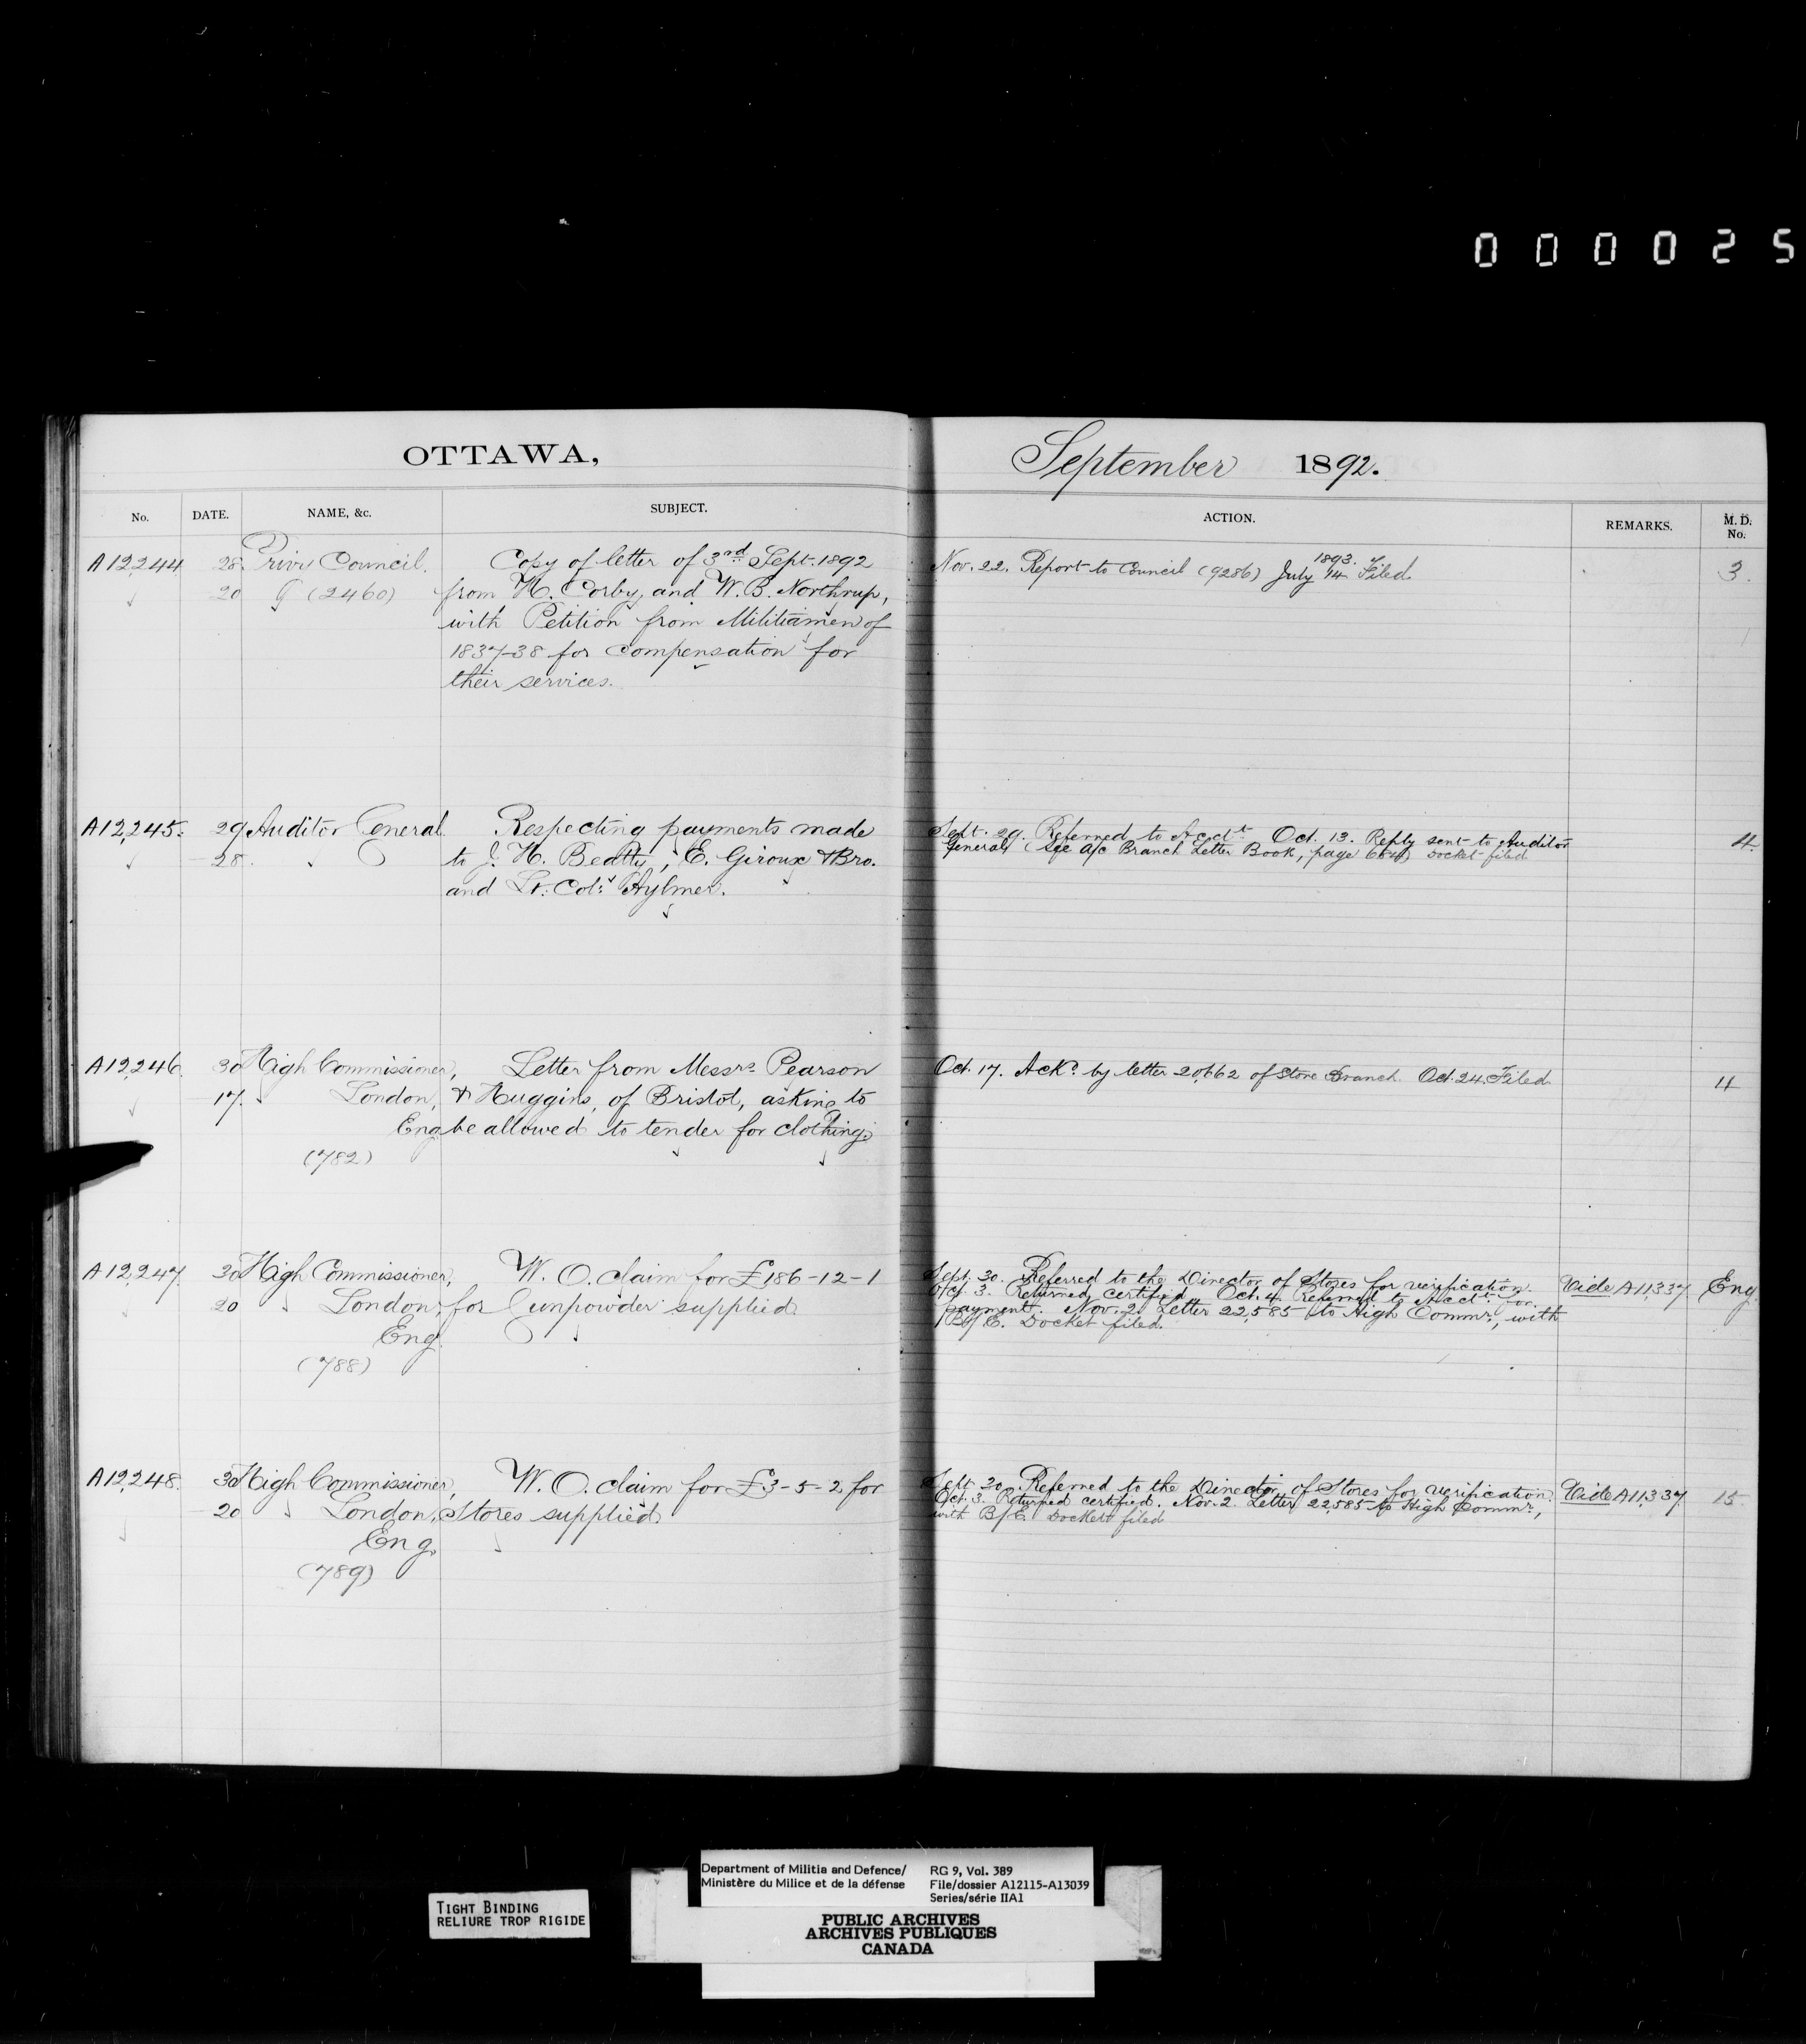 000025
OTTAWA,
September 1892.
No. DATE. NAME, &c. SUBJECT.
ACTION. REMARKS. M. D. No.
A12,244 28. Privy Council. Copy of letter of 3rd Sept. 1892
20 (2460) from H. Corby and W. B. Northrup,
with Petition from Militiamen of
1837-38 for compensation for
their services.
1893.
Nov. 22. Report to Council (9286) July 14 Filed. 3.
A12,245. 29 Auditor General Respecting payments made
28. to J. H. Beatty, E. Giroux & Bro.
and Lt. Col. Aylmer.
Sept. 29. Referred to Acct. Oct. 13. Reply sent to Auditor 4.
General (See A/c Branch Letter Book, page ) Docket filed
A12,246. 30 High Commissioner, Letter from Messrs Pearson
17. London, & Huggins, of Bristol, asking to
Eng. be allowed to tender for clothing.
(782)
Oct. 17. Ackd. by letter 20,662 of Store Branch. Oct. 24. Filed. 11
A12,247. 30 High Commissioner, W. O. claim for £186-12-1
20 London, for Gunpowder supplied.
Eng.
(788)
Sept. 30. Referred to the Director of Stores for verification. Vide A11,337 Eng.
Oct. 3. Returned certified. Oct. 4. Referred to Acct. for
payment. Nov. 2. Letter 22,585 to High Commr., with
B/E. Docket filed.
A12,248. 30 High Commissioner, W. O. claim for £3-5-2 for
20 London, Stores supplied.
Eng.
(789)
Sept. 30. Referred to the Director of Stores for verification. Vide A11,337 15
Oct. 3. Returned certified. Nov. 2. Letter 22,585 to High Commr.,
with B/E. Docket filed
TIGHT BINDING
RELIURE TROP RIGIDE
Department of Militia and Defence/ RG 9, Vol. 389
Ministère du Milice et de la défense File/dossier A12115-A13039
Series/série IIA1
PUBLIC ARCHIVES
ARCHIVES PUBLIQUES
CANADA